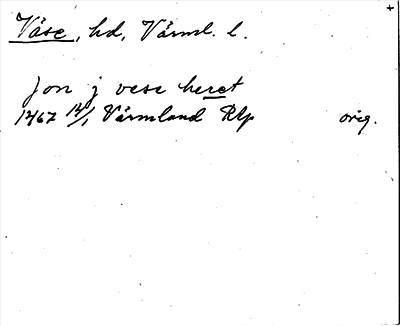 Väse, hd, Värml. l.
Jon j vese heret
1467 14/1 Värmland Rlp orig.